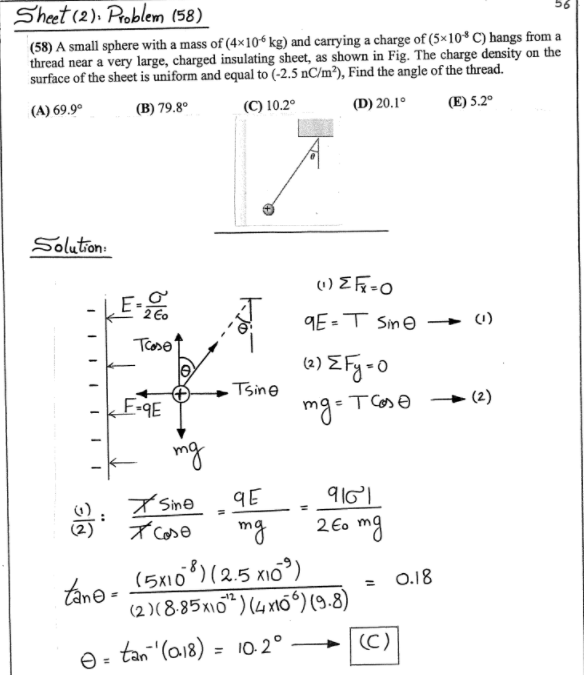 56
Sheet (2): Problem (58)
(58) A small sphere with a mass of (4×10⁻⁶ kg) and carrying a charge of (5×10⁻⁸ C) hangs from a
thread near a very large, charged insulating sheet, as shown in Fig. The charge density on the
surface of the sheet is uniform and equal to (-2.5 nC/m²), Find the angle of the thread.
(A) 69.9° (B) 79.8° (C) 10.2° (D) 20.1° (E) 5.2°
θ
+
Solution:
(1) ΣFx=0
E=σ/2ε₀
θ
qE = T Sinθ → (1)
Tcosθ
(2) ΣFy=0
θ
+
Tsinθ
F=qE
mg = T Cosθ → (2)
mg
(1)/(2) : T Sinθ / T Cosθ = qE / mg = q|σ| / 2ε₀ mg
tanθ = (5×10⁻⁸)(2.5 ×10⁻⁹) / (2)(8.85×10⁻¹²)(4×10⁻⁶)(9.8) = 0.18
θ = tan⁻¹(0.18) = 10.2° → (C)